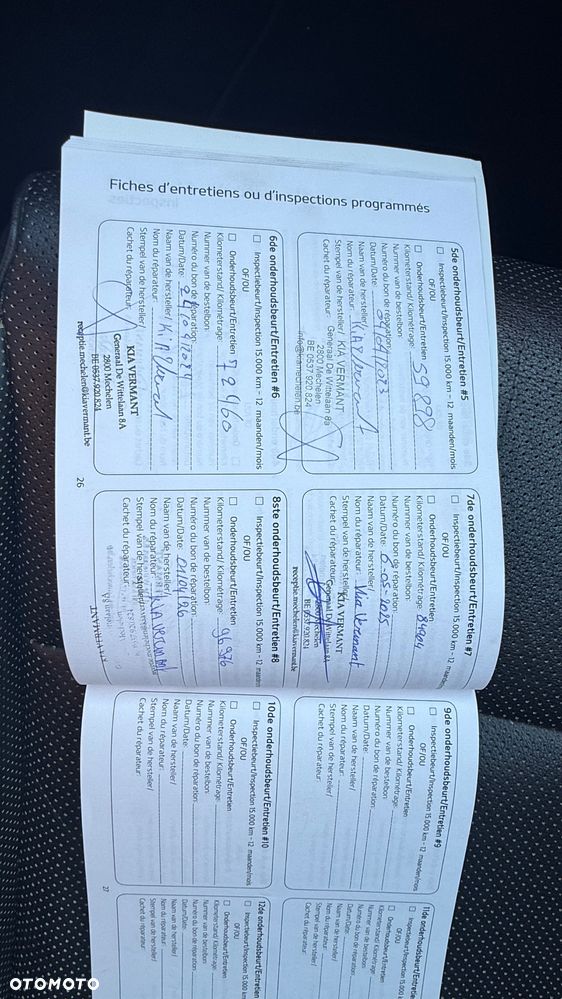 Fiches d'entretiens ou d'inspections programmés
5de onderhoudsbeurt/Entretien #5
Inspectiebeurt/Inspection 15.000 km - 12 maanden/mois
OF/OU
Onderhoudsbeurt/Entretien
Kilometerstand/ Kilométrage: 59 898
Nummer van de bestelbon:
Numéro du bon de réparation:
Datum/Date:
Naam van de hersteller/
Nom du réparateur: KIA Vermant
Stempel van de hersteller/
Cachet du réparateur:
KIA VERMANT
Generaal De Wittelaan 8a
2800 Mechelen
BE 0537 920 824
info@kiamechelen.be
6de onderhoudsbeurt/Entretien #6
Inspectiebeurt/Inspection 15.000 km - 12 maanden/mois
OF/OU
Onderhoudsbeurt/Entretien
Kilometerstand/ Kilométrage: 72460
Nummer van de bestelbon:
Numéro du bon de réparation:
Datum/Date:
Naam van de hersteller/
Nom du réparateur:
Stempel van de hersteller/
Cachet du réparateur:
KIA VERMANT
Generaal De Wittelaan 8A
2800 Mechelen
BE 0537.920.824
receptie.mechelen@kiavermant.be
26
7de onderhoudsbeurt/Entretien #7
Inspectiebeurt/Inspection 15.000 km - 12
OF/OU
Onderhoudsbeurt/Entretien
Kilometerstand/ Kilométrage: 84904
Nummer van de bestelbon:
Numéro du bon de réparation:
Datum/Date:
Naam van de hersteller/
Nom du réparateur: Kia Vermant
Stempel van de hersteller/
Cachet du réparateur:
KIA VERMANT
Generaal De
Mechelen
BE 0537.920.824
receptie.mechelen@kiavermant.be
8ste onderhoudsbeurt/Entretien #8
Inspectiebeurt/Inspection 15.000 km - 12
OF/OU
Onderhoudsbeurt/Entretien
Kilometerstand/ Kilométrage: 96976
Nummer van de bestelbon:
Numéro du bon de réparation:
Datum/Date:
Naam van de hersteller/
Nom du réparateur:
Stempel van de hersteller/
Cachet du réparateur:
9de onderhoudsbeurt/Entretien #9
Inspectiebeurt/Inspection 15.000 km - 12 maanden/mois
OF/OU
Onderhoudsbeurt/Entretien
Kilometerstand/ Kilométrage:
Nummer van de bestelbon:
Numéro du bon de réparation:
Datum/Date:
Naam van de hersteller/
Nom du réparateur:
Stempel van de hersteller/
Cachet du réparateur:
10de onderhoudsbeurt/Entretien #10
Inspectiebeurt/Inspection 15.000 km - 12 maanden/mois
OF/OU
Onderhoudsbeurt/Entretien
Kilometerstand/ Kilométrage:
Nummer van de bestelbon:
Numéro du bon de réparation:
Datum/Date:
Naam van de hersteller/
Nom du réparateur:
Stempel van de hersteller/
Cachet du réparateur:
27
11de onderhoudsbeurt/Entretien #
Inspectiebeurt/Inspection 15.000 km
OF/OU
Onderhoudsbeurt/Entretien
Kilometerstand/ Kilométrage:
Nummer van de bestelbon:
Numéro du bon de réparation:
Datum/Date:
Naam van de hersteller/
Nom du réparateur:
Stempel van de hersteller/
Cachet du réparateur:
12de onderhoudsbeurt/Entretien #
Inspectiebeurt/Inspection 15.000 km
OF/OU
Onderhoudsbeurt/Entretien
Kilometerstand/ Kilométrage:
Nummer van de bestelbon:
Numéro du bon de réparation:
Datum/Date:
Naam van de hersteller/
Nom du réparateur:
Stempel van de hersteller/
Cachet du réparateur:
OTOMOTO